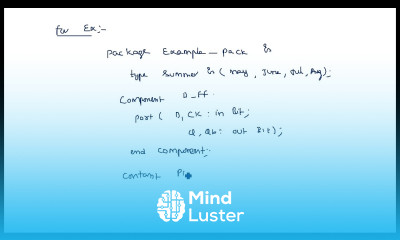 for Ex:-
package Example_pack is
type Summer is (may, June, Jul, Aug);
Component D_ff
port ( D, CK : in Bit;
Q, Qb : out Bit);
end component;
contant Pi
Mind
Luster